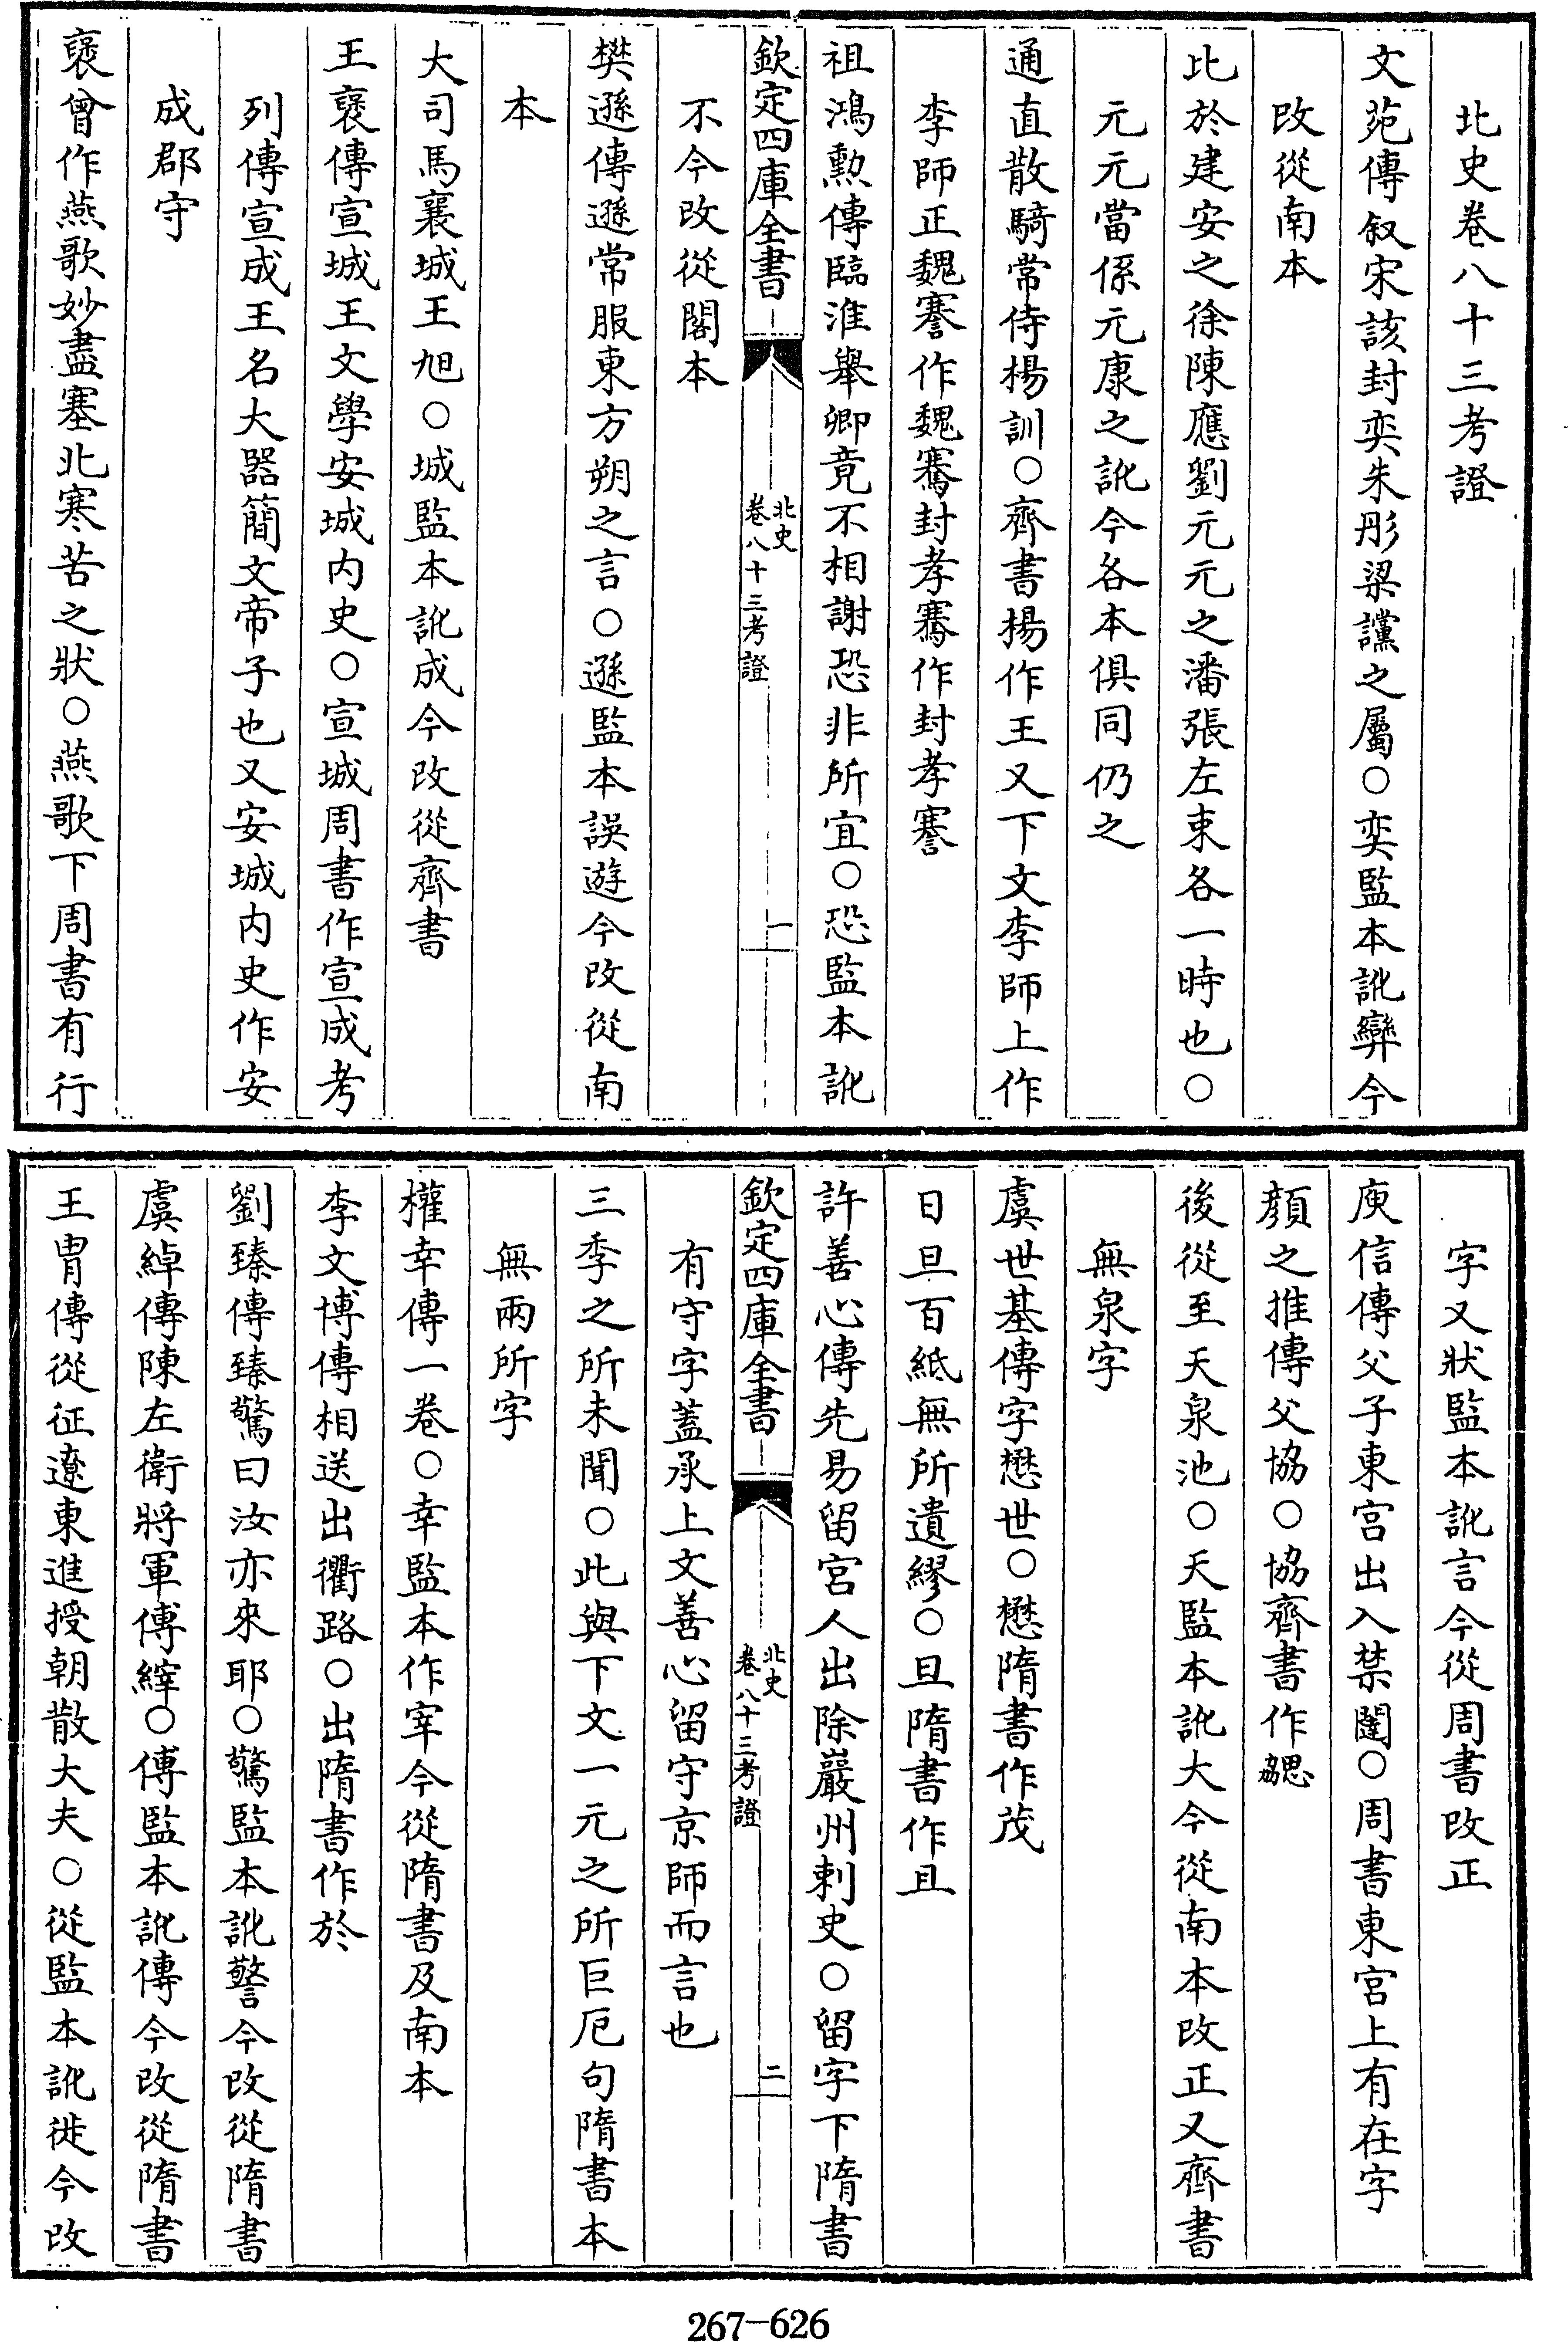 北史卷八十三考證
文苑傳叙宋該封奕朱彤梁讜之屬○奕監本訛犖今
改從南本
比於建安之徐陳應劉元元之潘張左束各一時也○
元元當係元康之訛今各本俱同仍之
通直散騎常侍楊訓○齊書楊作王又下文李師上作
李師正魏謇作魏騫封孝騫作封孝謇
祖鴻勲傳臨淮舉卿竟不相謝恐非所宜○恐監本訛
欽定四庫全書
北史
卷八十三考證
一
不今改從閣本
樊遜傳遜常服東方朔之言○遜監本誤遊今改從南
本
大司馬襄城王旭○城監本訛成今改從齊書
王襃傳宣城王文學安城内史○宣城周書作宣成考
列傳宣成王名大器簡文帝子也又安城内史作安
成郡守
襃曾作燕歌妙盡塞北寒苦之狀○燕歌下周書有行
字又狀監本訛言今從周書改正
庾信傳父子東宮出入禁闥○周書東宮上有在字
顏之推傳父協○協齊書作勰
後從至天泉池○天監本訛大今從南本改正又齊書
無泉字
虞世基傳字懋世○懋隋書作茂
日旦百紙無所遺繆○旦隋書作且
許善心傳先易留宮人出除巖州刺史○留字下隋書
欽定四庫全書
北史
卷八十三考證
二
有守字蓋承上文善心留守京師而言也
三季之所未聞○此與下文一元之所巨厄句隋書本
無兩所字
權幸傳一卷○幸監本作宰今從隋書及南本
李文博傳相送出衢路○出隋書作於
劉臻傳臻驚曰汝亦來耶○驚監本訛警今改從隋書
虞綽傳陳左衛將軍傅縡○傅監本訛傳今改從隋書
王胄傳從征遼東進授朝散大夫○從監本訛徙今改
267-626